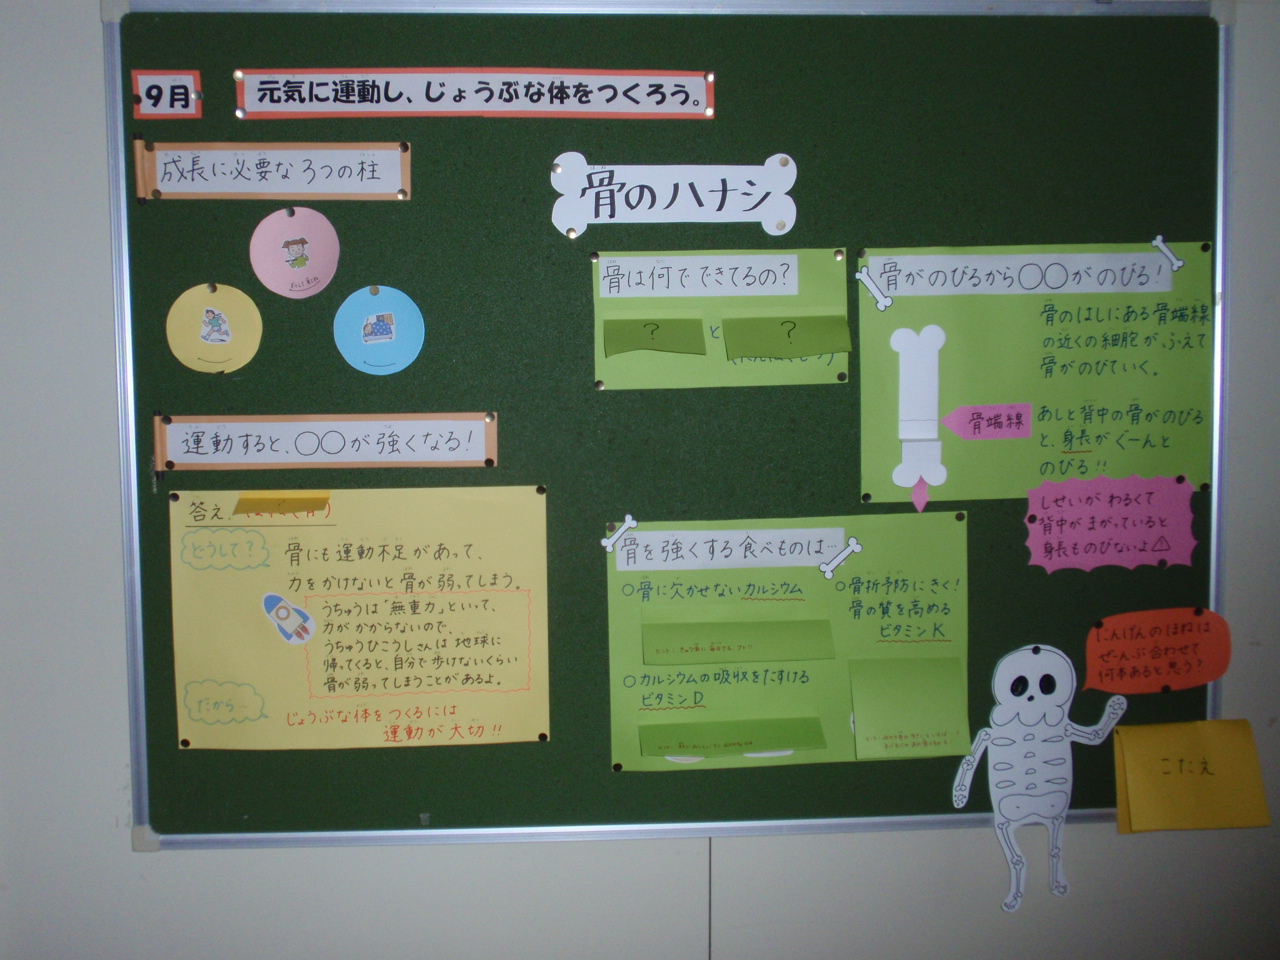 9月
元気に運動し、じょうぶな体をつくろう。
成長に必要な3つの柱
運動すると、○○が強くなる！
答え.
どうして？
骨にも運動不足があって、
力をかけないと骨が弱ってしまう。
うちゅうは"無重力"といって、
力がかからないので、
うちゅうひこうしさんは地球に
帰ってくると、自分で歩けないくらい
骨が弱ってしまうことがあるよ。
だから…
じょうぶな体をつくるには
運動が大切!!
骨のハナシ
骨は何でできてるの？
？
と
？
骨がのびるから○○がのびる！
骨のはしにある骨端線
の近くの細胞が、ふえて
骨がのびていく。
骨端線
あしと背中の骨がのびる
と、身長がぐーんと
のびる!!
しせいがわるくて
背中がまがっていると
身長ものびないよ⚠
骨を強くする食べものは…
○骨に欠かせないカルシウム
○カルシウムの吸収をたすける
ビタミンD
○骨折予防にきく！
骨の質を高める
ビタミンK
にんげんのほねは
ぜーんぶ合わせて
何本あると思う？
こたえ